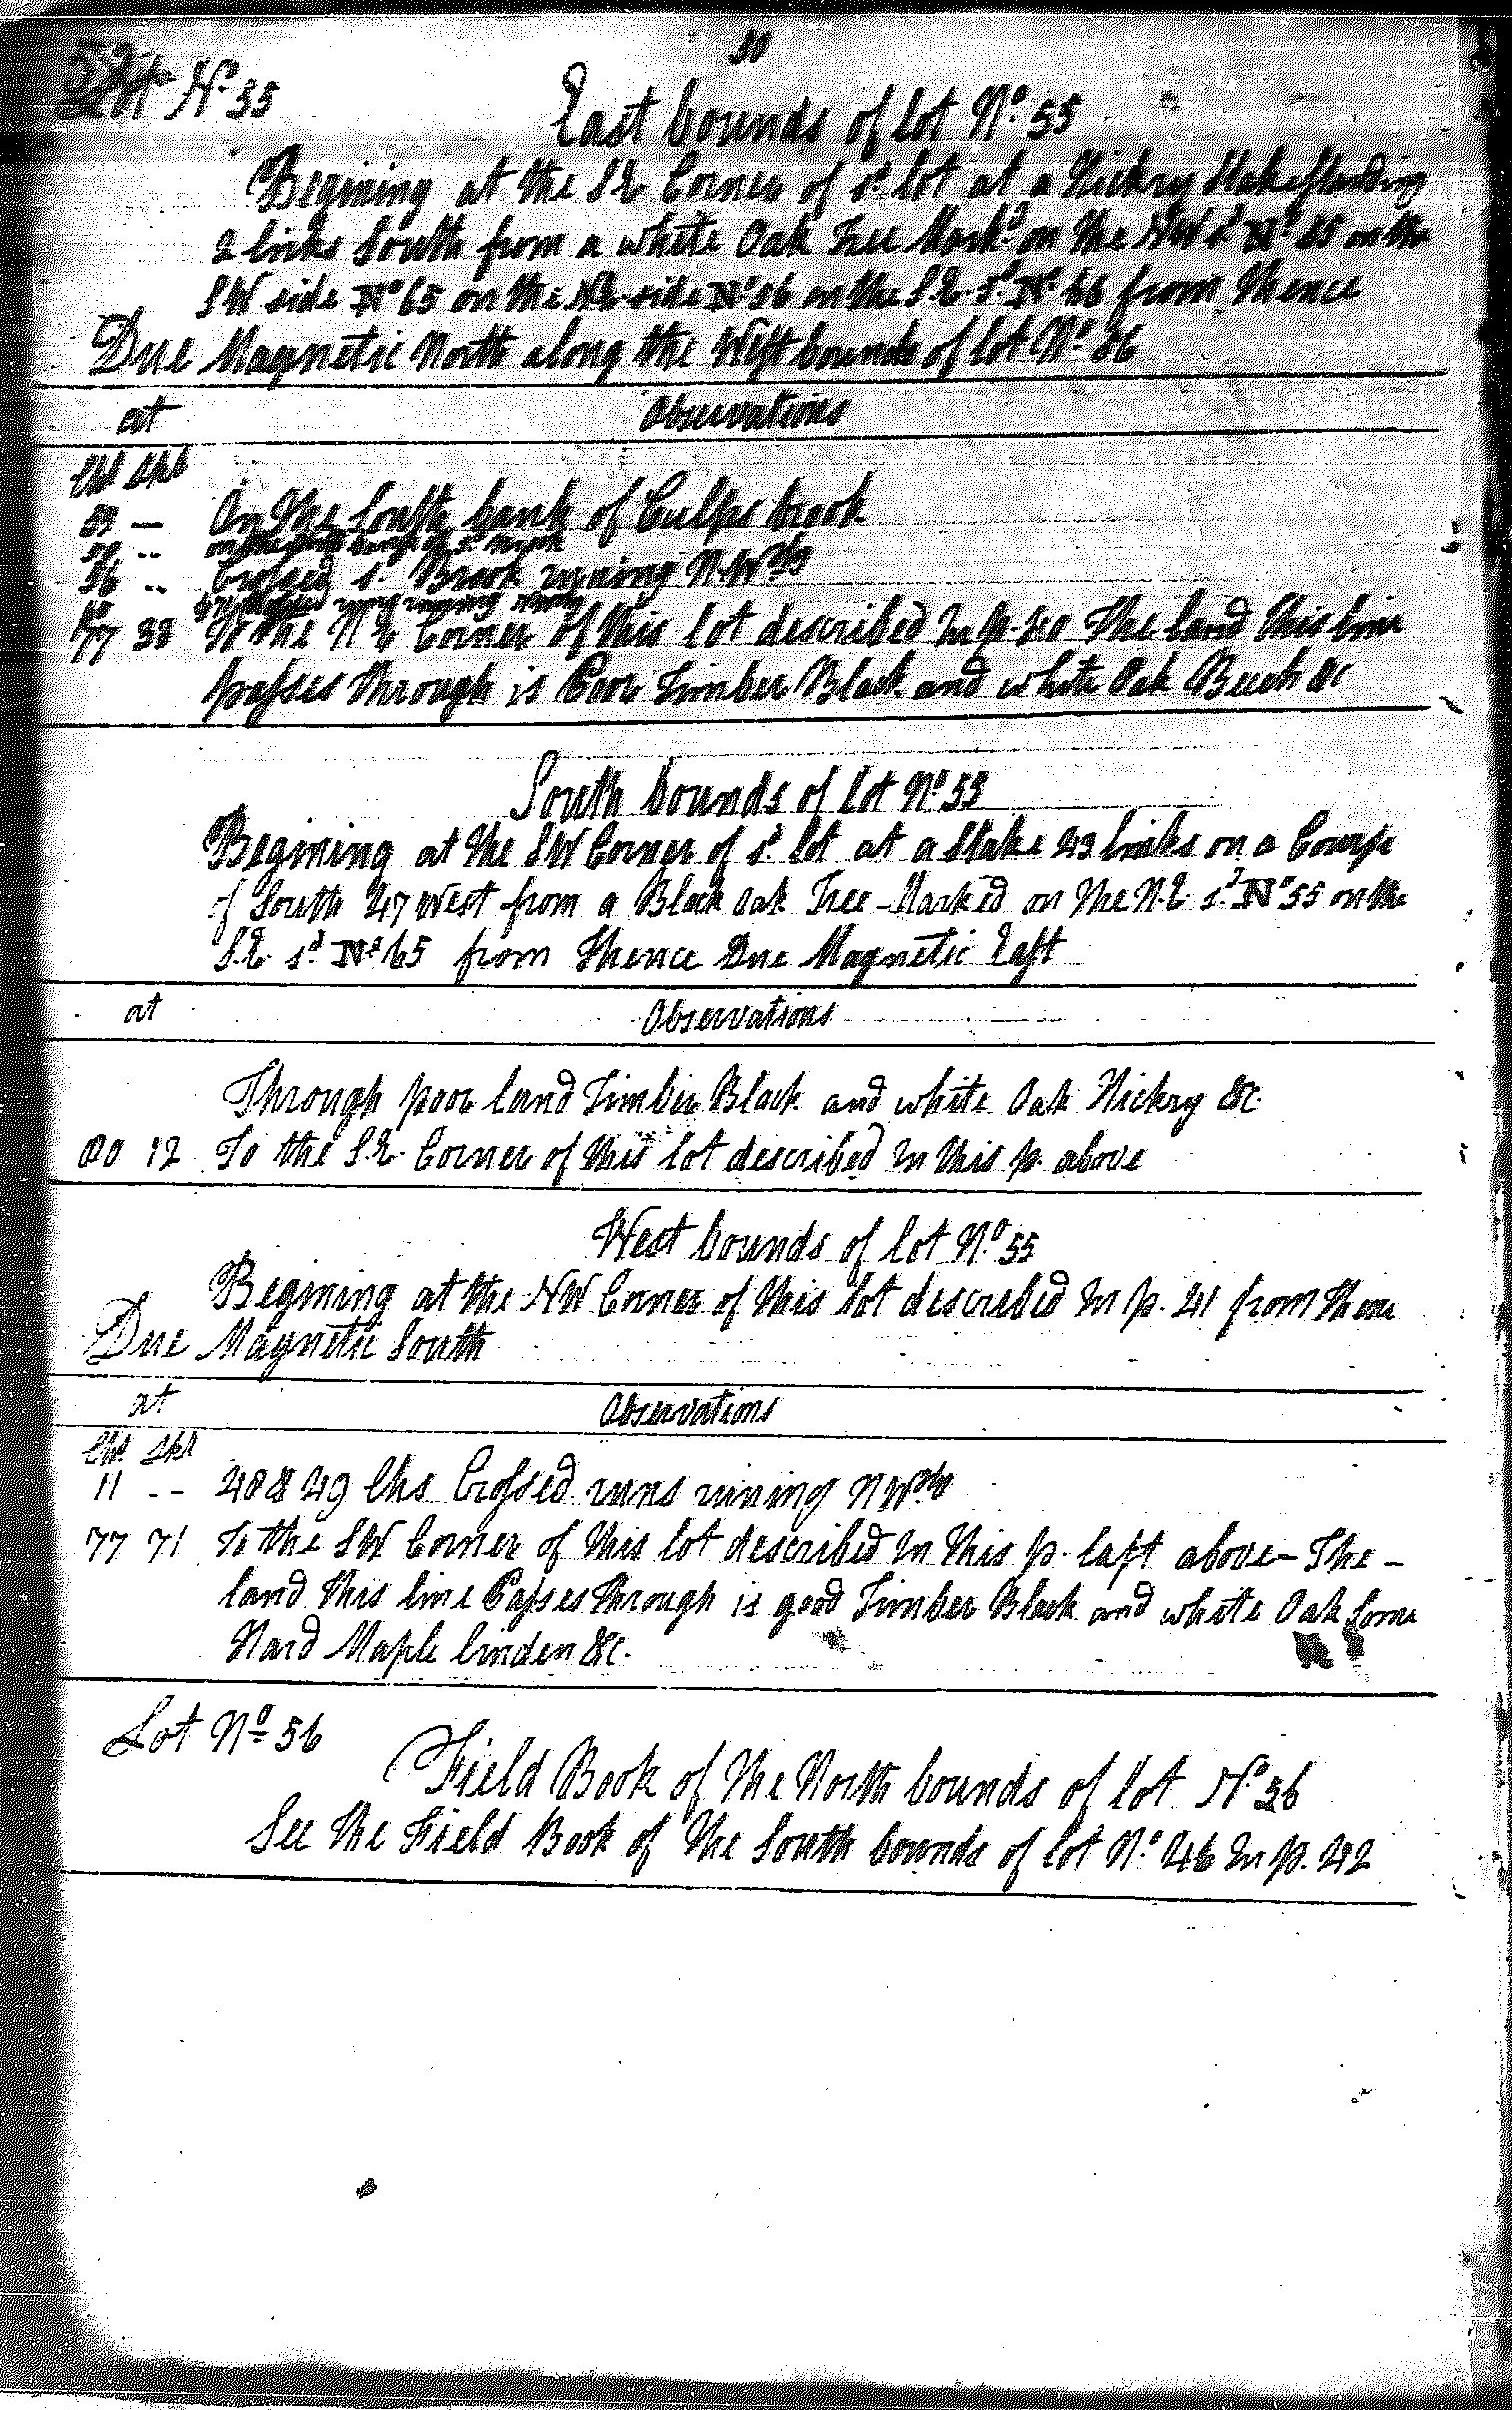 50
Lot No. 55
East bounds of lot No. 55
Begining at the S.E Corner of sd. lot at a Hickry Stake Standing
2 links South from a white Oak Tree Markd on the NW sd No 55 on the
SW side No 65 on the NE side No 56 on the S.E. sd. No 66 from thence
Due Magnetic North along the West bounds of lot No. 56
at Observations
Chs Lks
On the South bank of Culps brook
36 .. Crossed sd. Brook runing N.Wly
77 38 To the N E Corner of this lot described In p. 40 The land this line
passes through is Poor Timber Black and white Oak Beech &c
South bounds of lot No. 55
Begining at the SW Corner of sd. lot at a Stake 43 links on a Course
of South 47 West from a Black Oak Tree Marked on the N.E. sd. No 55 on the
S.E. sd. No. 65 from Thence Due Magnetic East
at Observations
Through poor land Timber Black and white Oak Hickry &c.
80 12 To the S.E. Corner of this lot described In this p. above
West bounds of lot No. 55
Begining at the NW Corner of this lot described In p. 41 from thence
Due Magnetic South
at Observations
Chs. Lks
11 -- 40 & 49 Chs Crossed runs runing N Wly
77 71 To the SW Corner of this lot described In this p. last above - The -
land this line Passes through is good Timber Black and white Oak Some
Hard Maple linden &c.
Lot No. 56
Field Book of the North bounds of lot No. 56
See the Field Book of the South bounds of lot No. 46 In p. 42